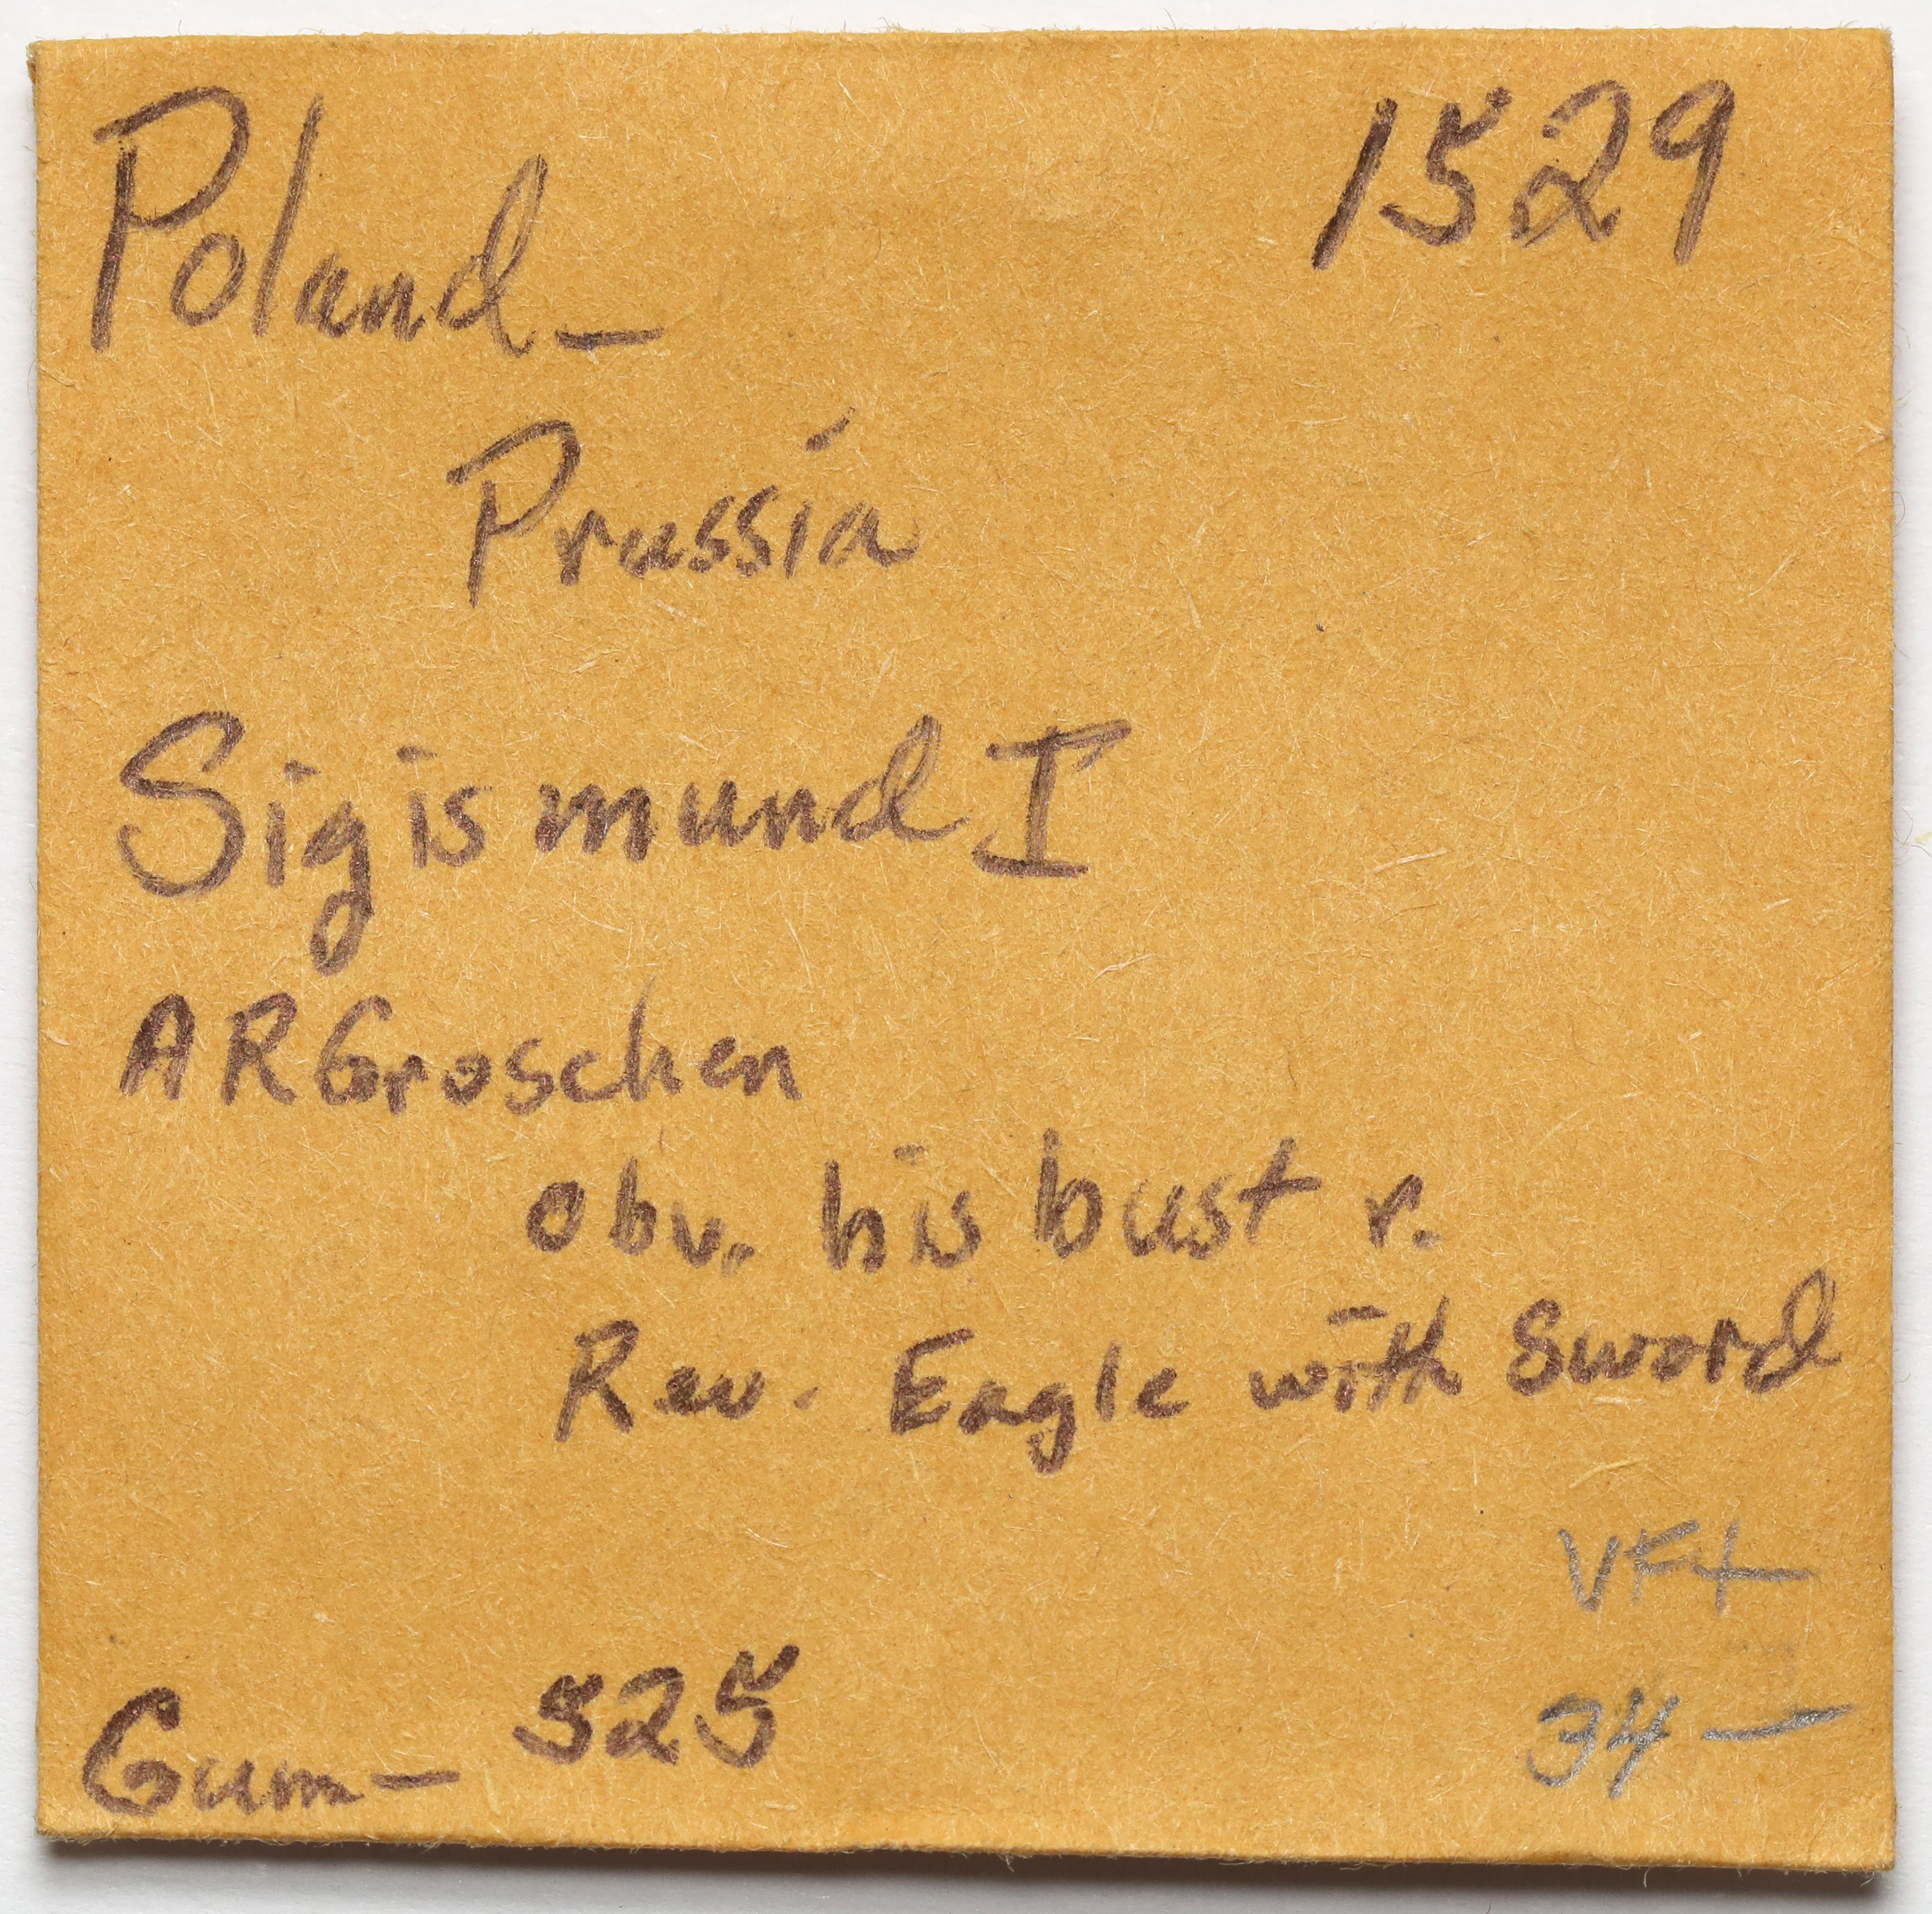 Poland — 1529
Prussia
Sigismund I
AR Groschen
obv. his bust r.
Rev. Eagle with Sword
VF+
Gum — 525
34 —